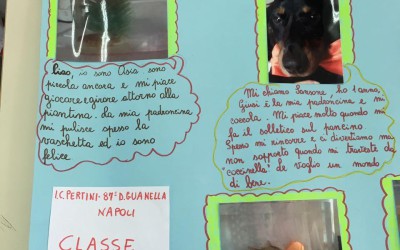 Ciao, io sono Asia sono
piccola ancora e mi piace
giocare e girare attorno alla
piantina. La mia padroncina
mi pulisce spesso la
vaschetta ed io sono
felice
Mi chiamo Sansone, ho 1 anno,
Giusi è la mia padroncina e mi
coccola. Mi piace molto quando mi
fa il solletico sul pancino
Spesso mi rincorre e ci divertiamo ma
non sopporto quando mi traveste da
"coccinella" Le voglio un mondo
di bene.
I.C. PERTINI-87° D. GUANELLA
NAPOLI
CLASSE